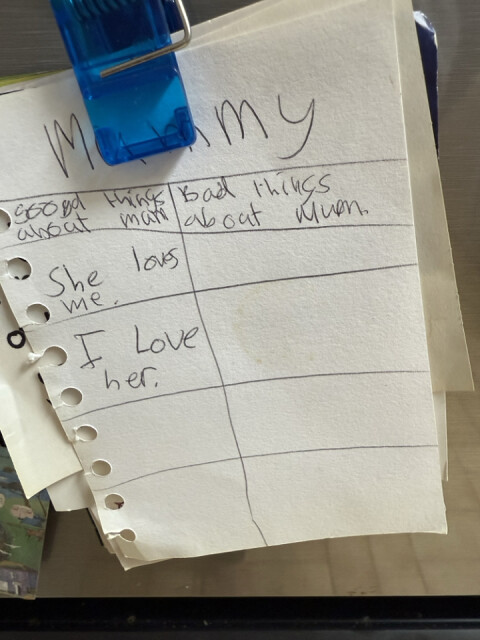 Mummy
good things
about mum
Bad things
about Mum.
She loves
me.
I Love
her.